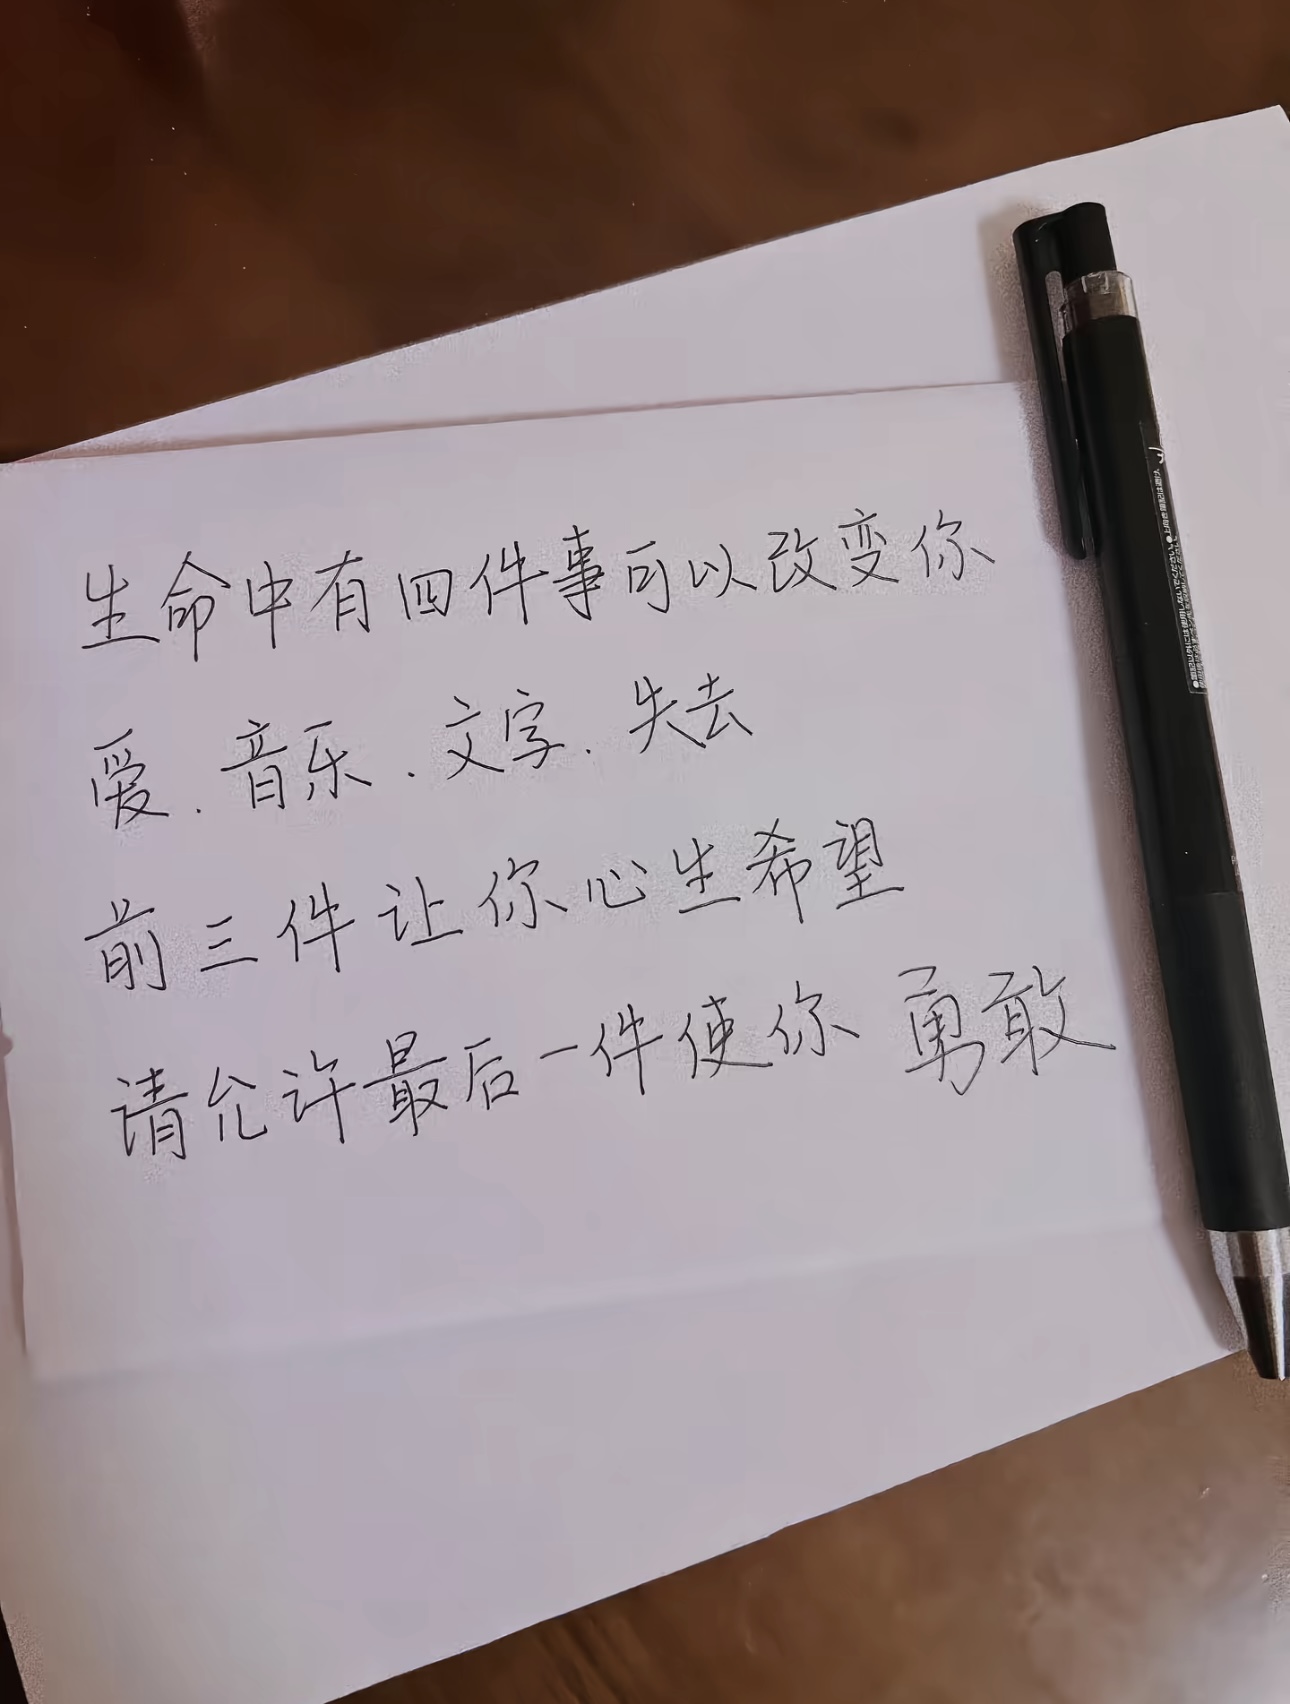 生命中有四件事可以改变你
爱.音乐.文字.失去
前三件让你心生希望
请允许最后一件使你勇敢